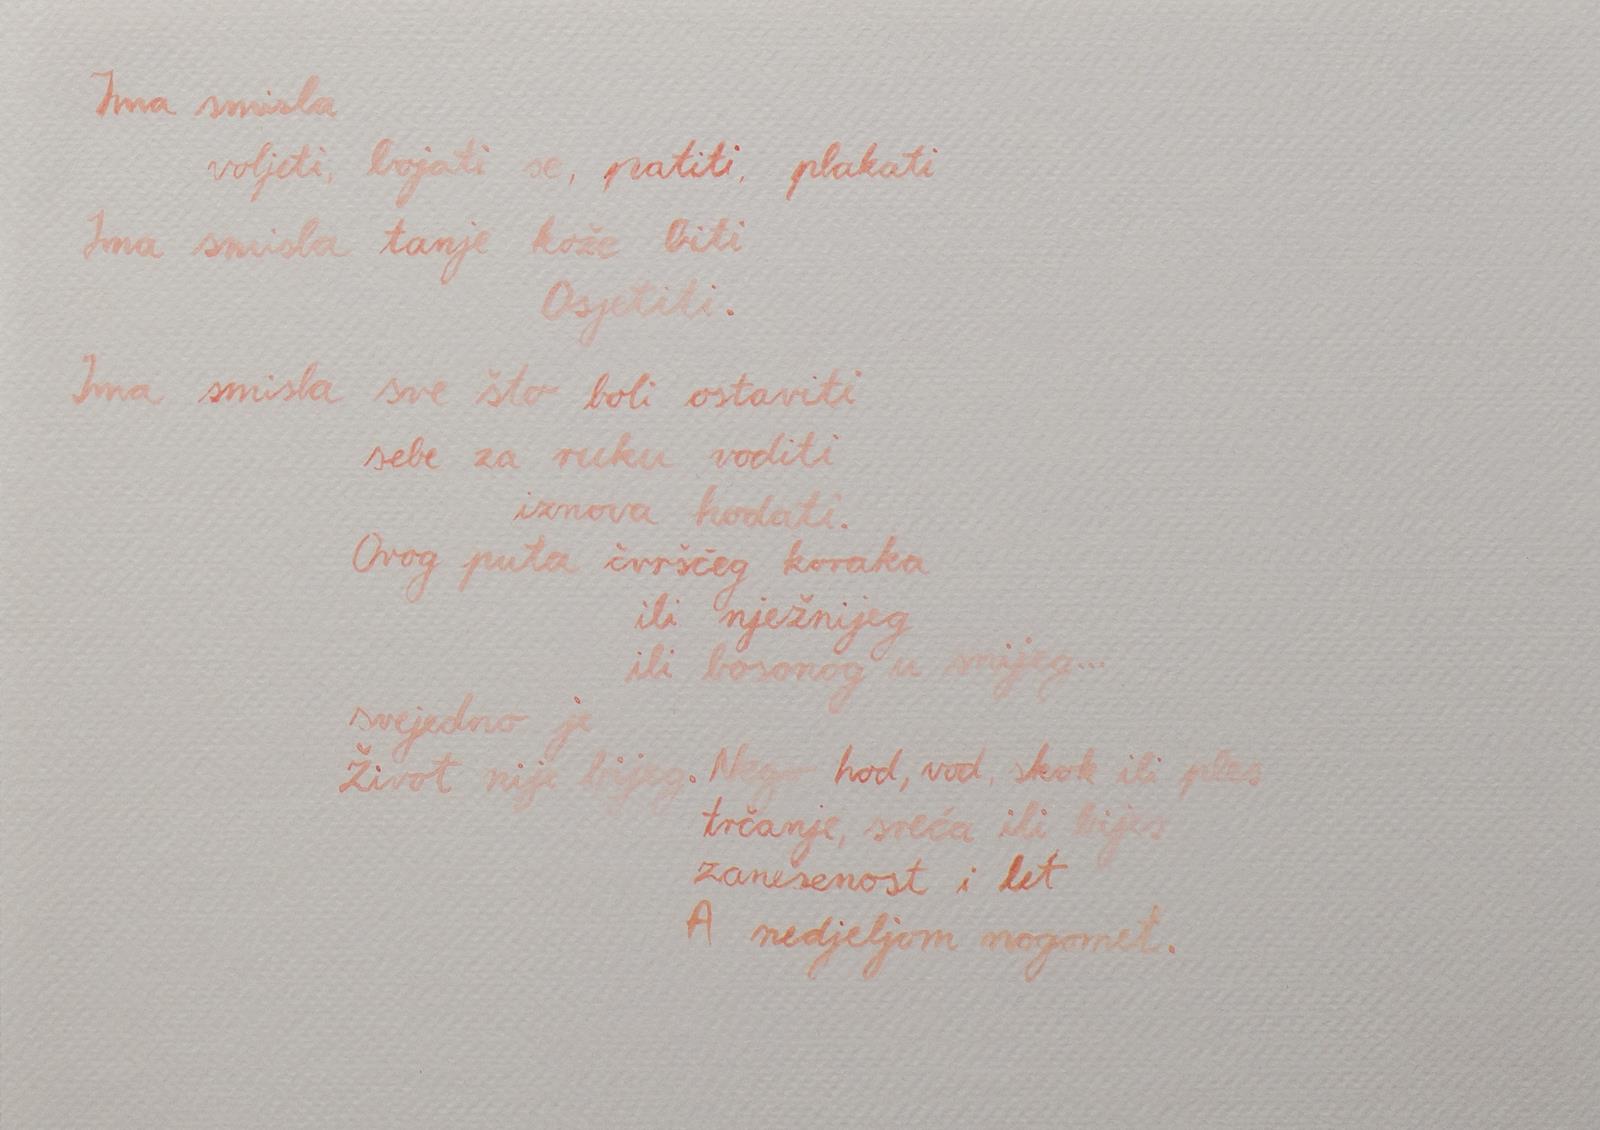 Ima smisla
voljeti, bojati se, patiti, plakati
Ima smisla tanje kože biti
Osjetiti.
Ima smisla sve što boli ostaviti
sebe za ruku voditi
iznova hodati.
Ovog puta čvršćeg koraka
ili nježnijeg
ili bosonog u snijeg...
svejedno je
Život nije bijeg. Nego hod, vod, skok ili ples
trčanje, sreća ili bijes
zanesenost i let
A nedjeljom nogomet.